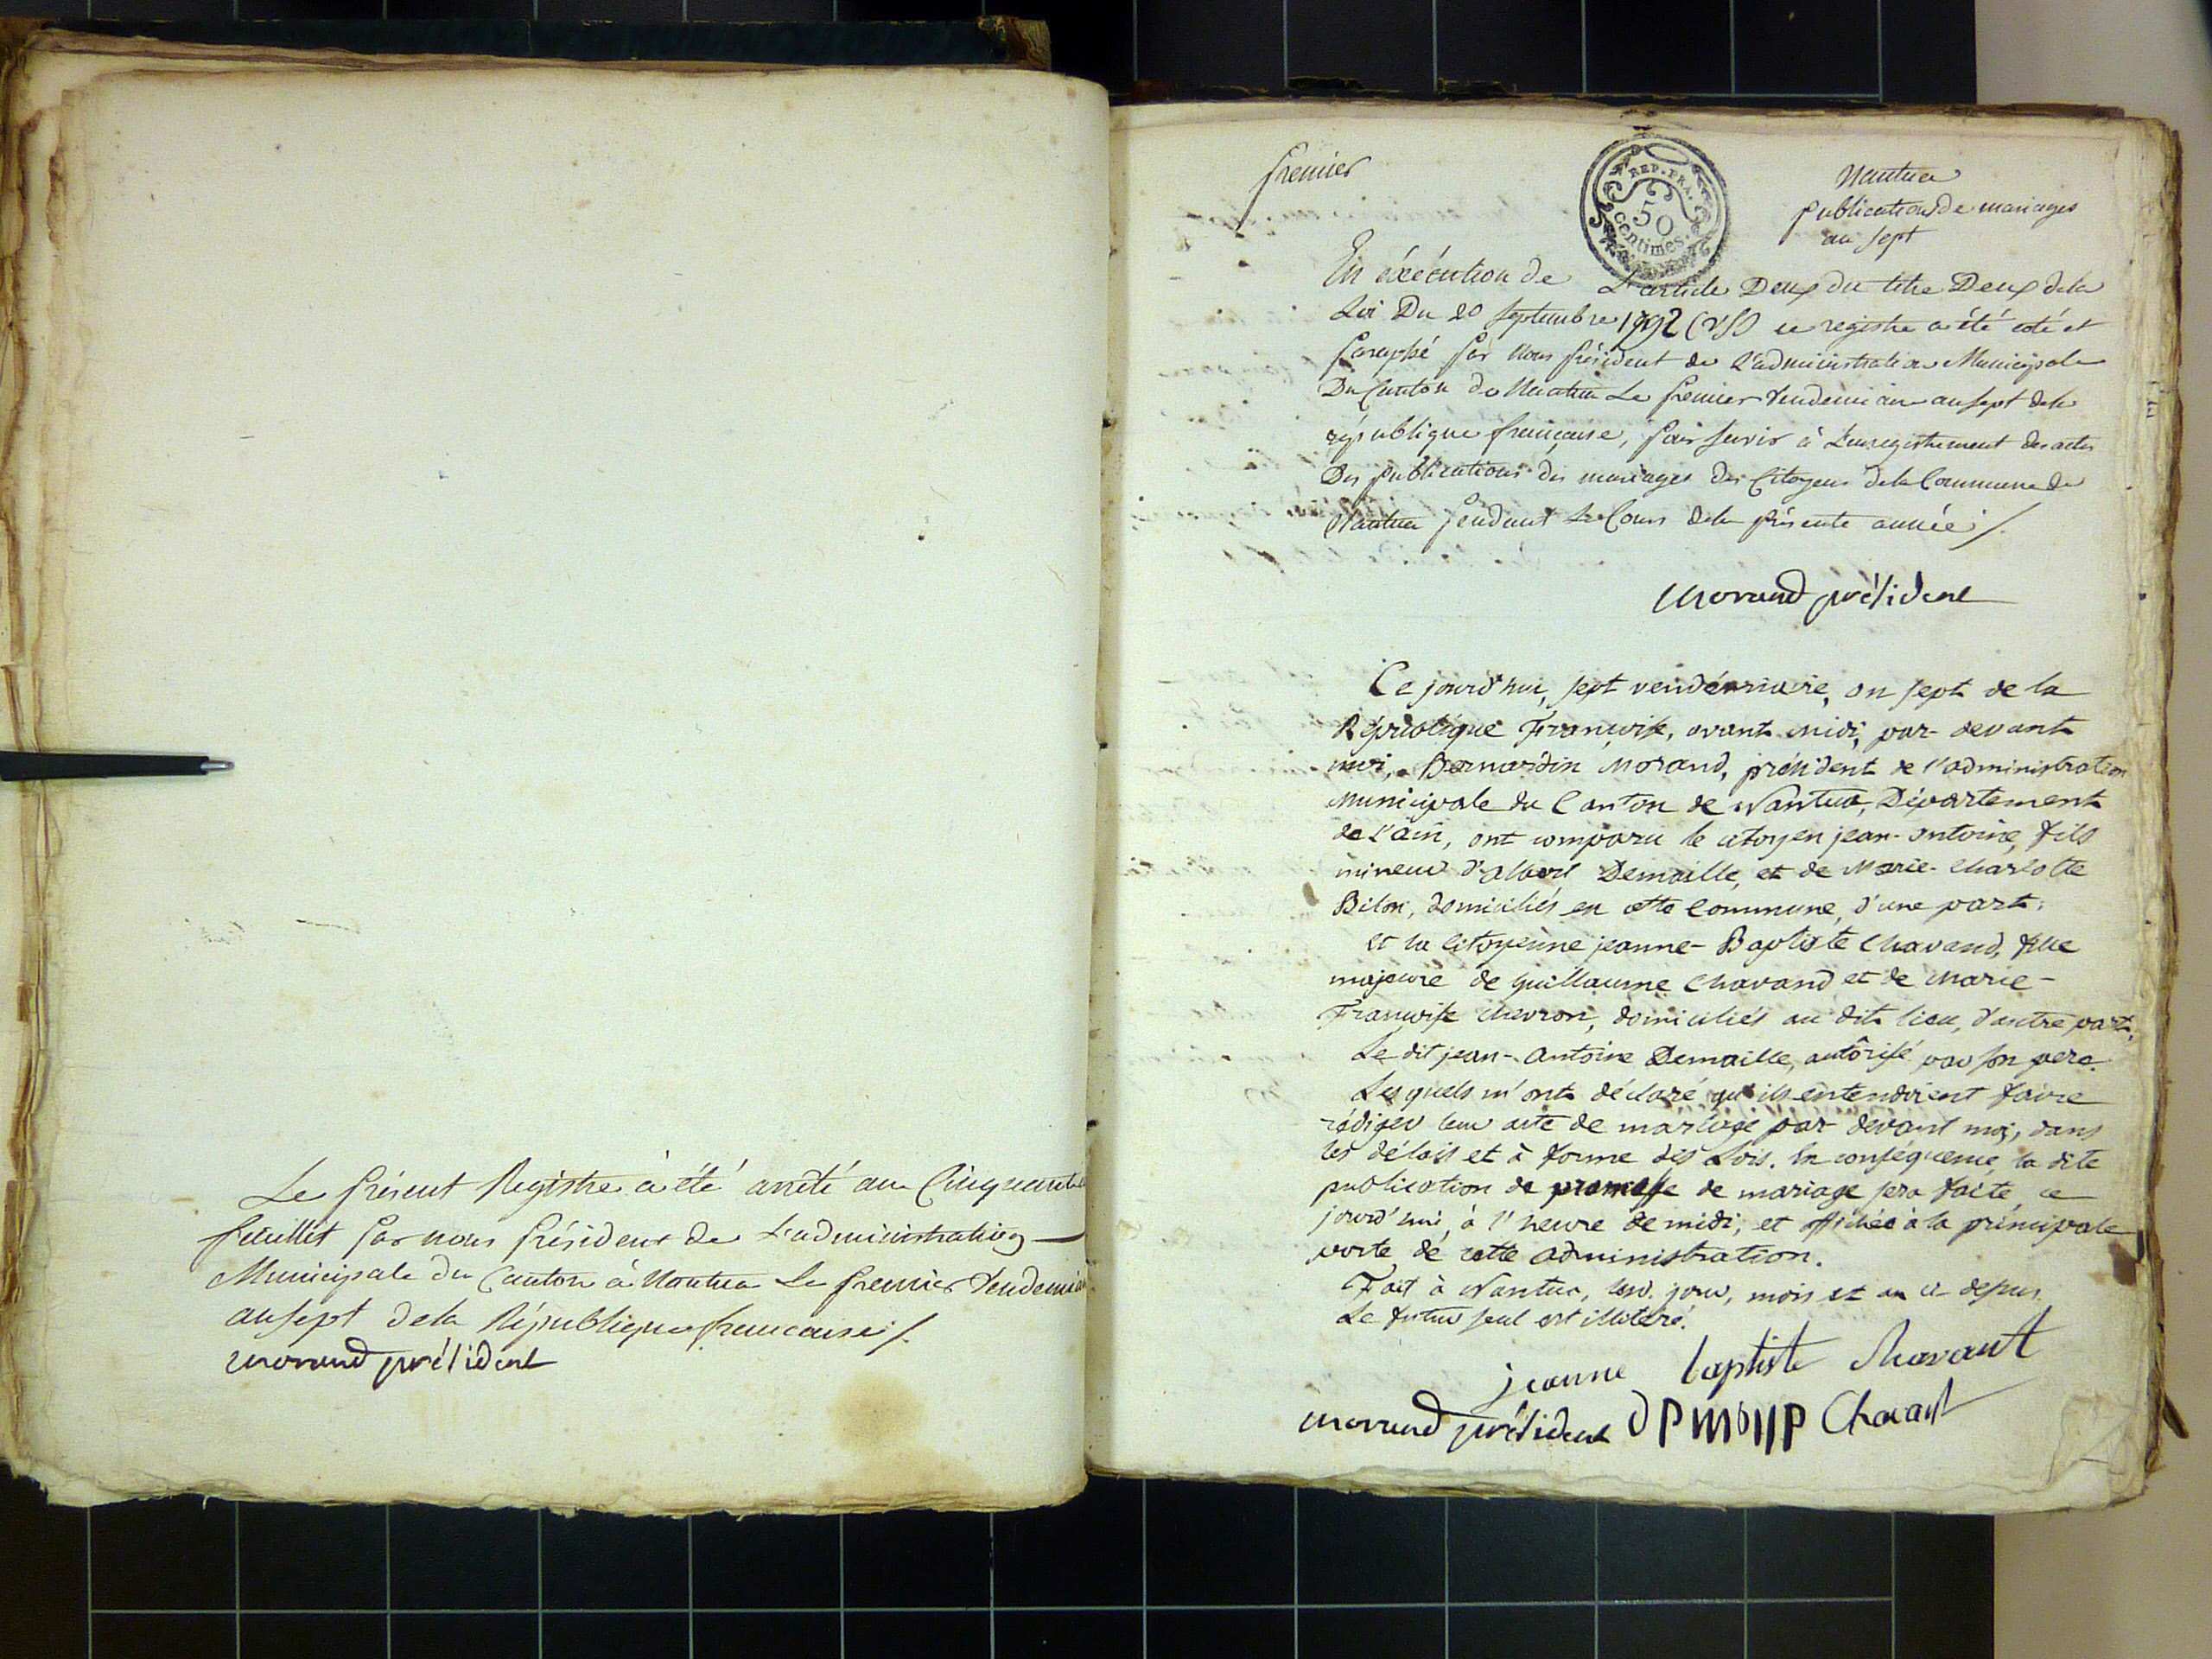 Le présent Registre à été arrêté au Cinquante
feuillet par nous Président de L'administration
Municipale du Canton à Nantua Le premier Vendemiai
an sept de la République francaise /.
morand président
premier
REP. FRA.
50
centimes.
Nantua
publication de mariages
an sept
En éxécution de L'article Deux du titre Deux de la
Loi Du 20 septembre 1792 (VS) ce registre a été coté et
paraphé par Nous président de L'administration Municipale
Du Canton de Nantua Le premier Vendemiaire an sept de la
république française, pour servir à L'enregistrement des actes
Des publications des mariages des Citoyens de la Commune de
Nantua pendant Le Cours de la présente année /.
morand président
Ce jourd'hui, sept vendémiaire, an sept de la
République Françoise, avant midi, par-devant
moi, Bernardin Morand, président de l'administration
municipale du Canton de Nantua, Département
de l'ain, ont comparu le citoyen jean-antoine, fils
mineur d'albert Demaille, et de Marie-Charlotte
Bilon, domiciliés en cette Commune, d'une part.
et la citoyenne jeanne-Baptiste Chavand, fille
majeure de guillaume Chavand et de Marie-
Françoise Chevron, domiciliés au dit lieu, d'autre part,
Le dit jean-Antoine Demaille, autôrisé par son pere.
Lesquels m'ont déclaré qu'ils entendoient faire
rédiger leur acte de mariage par devant moi, dans
les délais et à forme des Lois. En conséquence, la dite
publication de promesse de mariage sera faite, ce
jourd'hui, à l'heure de midi, et affichée à la principale
porte de cette administration.
Fait à Nantua, les jour, mois et an ci-dessus.
Le futur seul est illitéré.
jeanne baptiste Chavant
morand président Chavant